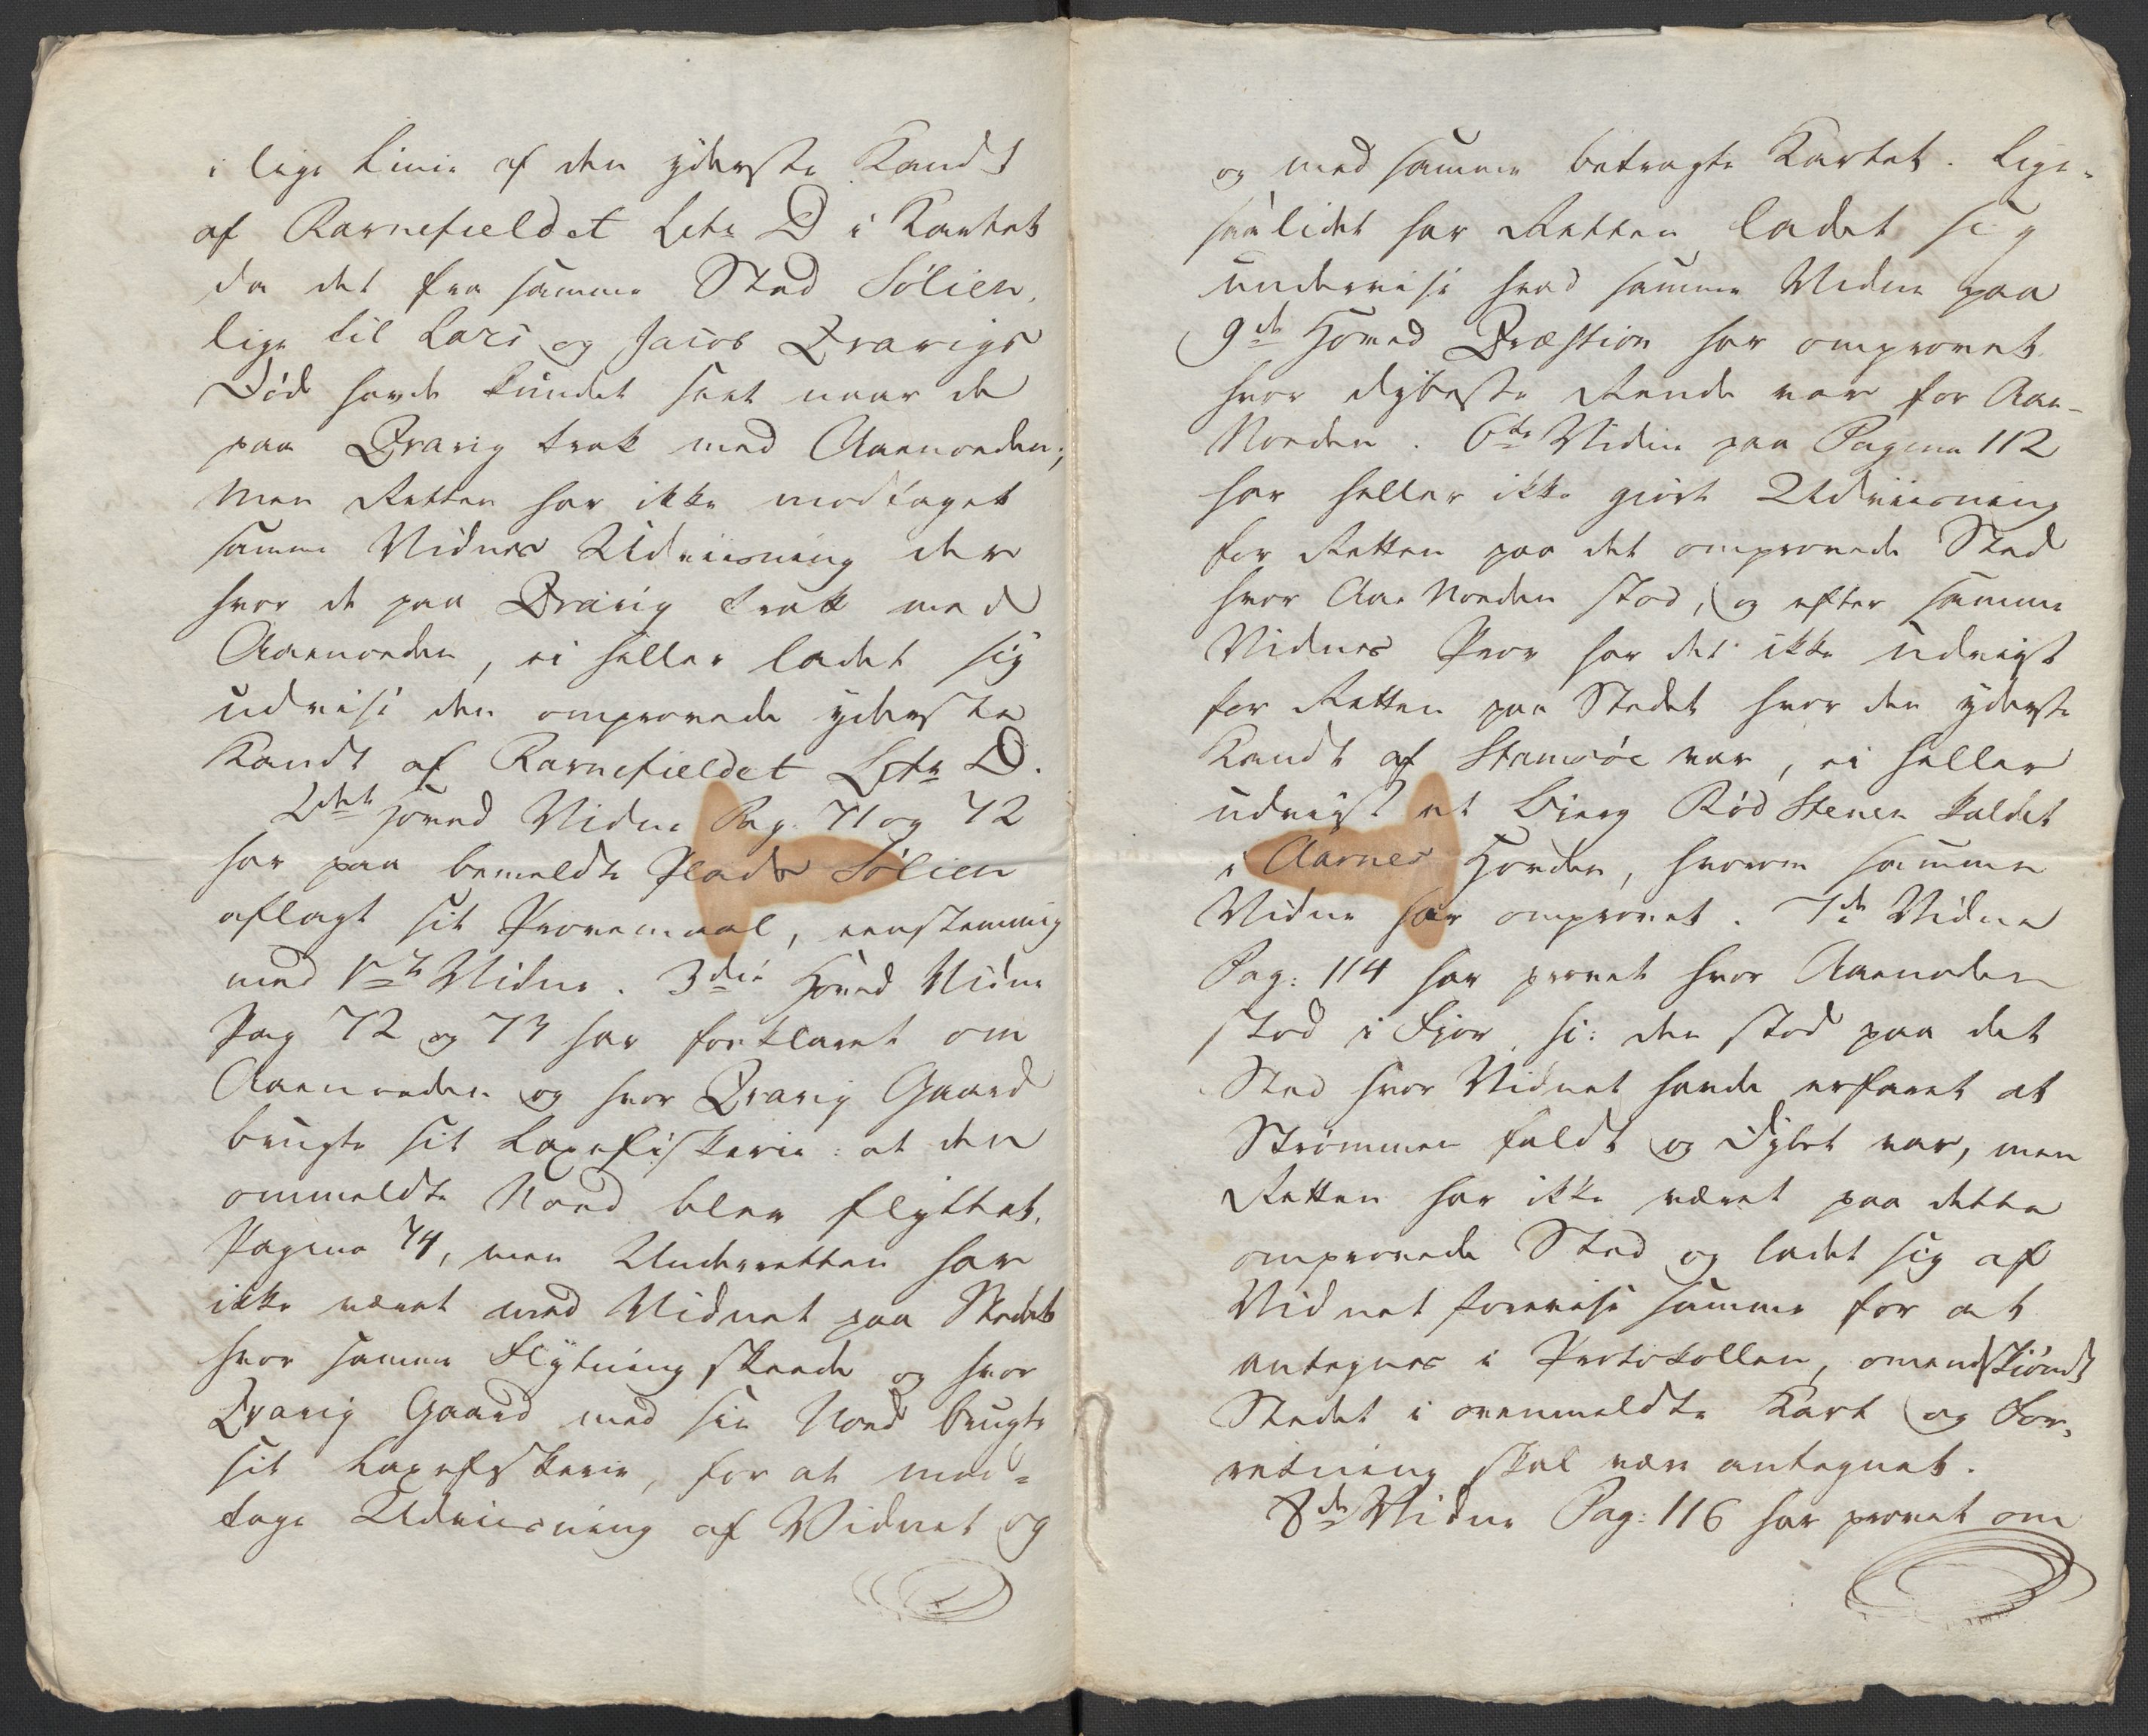 i lige Linie af den yderste Kandt
af Ravnefieldet Litr D i Kartet
da det fra samme Sted Sølien,
lige til Lars og Jacob Qvavigs
Død havde kundet seet naar de
paa Qvavig trak med Aaenoeden;
Men Retten har ikke modtaget
samme Vidnes Udviisning der
hvor de paa Qvavig trak med
Aaenoeden, ei heller ladet sig
udvise den omprovede yderste
Kandt af Ravnefieldet Litr D.
2det Hoved Vidne Pag. 71 og 72
har paa bemeldte Plads Sølien
aflagt sit Provemaal, eenstemmig
med 1te Vidne. 3die Hoved Vidne
Pag 72 og 73 har forklaret om
Aaenoeden og hvor Qvavig Gaard
brugte sit Laxefiskerie: at den
ommeldte Noed blev flyttet.
Pagina 74, men Underretten har
ikke været med Vidnet paa Stedet
hvor samme Flytning skeede og hvor
Qvavig Gaard med sin Noed brugte
sit Laxefiskerie, for at mod=
tage Udviisning af Vidnet og
og med samme betragte Kartet. Lige-
saalidet har Retten ladet sig
undervise hvad samme Vidne paa
9de Hoved Qvæstion har omprovet
hvor dybeste Rende var for Aae-
Noeden. 6te Vidne paa Pagina 112
har heller ikke giort Udviisning
for Retten paa det omprovede Sted
hvor Aae Noeden stod, og efter samme
Vidnes Prov har det ikke udviist
for Retten paa Stedet hvor den yderste
Kandt af Stamsøe var, ei heller
udviist et Bierg Rød Stenen kaldet
i Aarnes Hovden, hvorom samme
Vidne har omprovet. 7de Vidne
Pag: 114 har provet hvor Aaenoden
stod i Fjor, si: den stod paa det
Sted hvor Vidnet havde erfaret at
Strømmen faldt og Dybet var, men
Retten har ikke været paa dette
omprovede Sted og ladet sig af
Vidnet forevise samme for at
antegnes i Protokollen, omendskiøndt
Stedet i ovenmeldte Kart og For-
retning skal være antegnet.
8de Vidne Pag: 116 har provet om